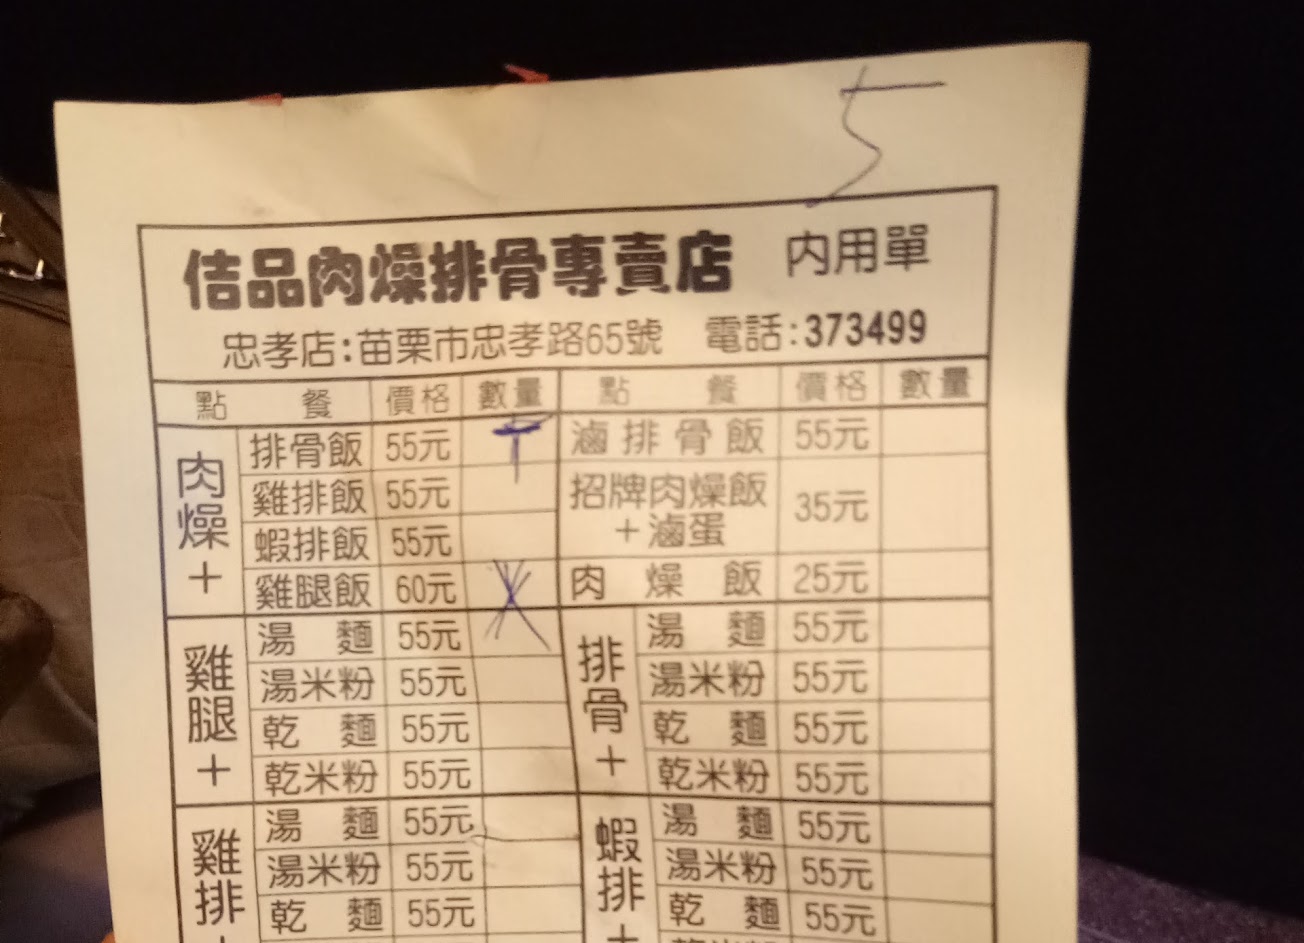 5
佶品肉燥排骨專賣店 內用單
忠孝店:苗栗市忠孝路65號 電話:373499
點餐 價格 數量 點餐 價格 數量
肉燥+ 排骨飯 55元 滷排骨飯 55元
雞排飯 55元 招牌肉燥飯+滷蛋 35元
蝦排飯 55元
雞腿飯 60元 肉燥飯 25元
雞腿+ 湯麵 55元 排骨+ 湯麵 55元
湯米粉 55元 湯米粉 55元
乾麵 55元 乾麵 55元
乾米粉 55元 乾米粉 55元
雞排+ 湯麵 55元 蝦排+ 湯麵 55元
湯米粉 55元 湯米粉 55元
乾麵 55元 乾麵 55元